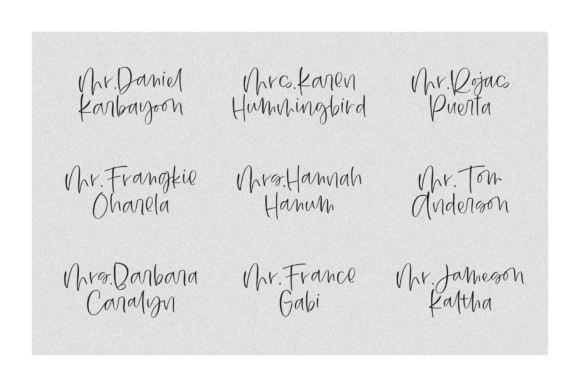 Mr.Daniel
Karbayoon
Mrs.Karen
Hummingbird
Mr.Rojas
Puerta
Mr.Frangkie
Oharela
Mrs.Hannah
Hanum
Mr. Tom
Anderson
Mrs.Barbara
Caralyn
Mr.France
Gabi
Mr.Jameson
Kaltha